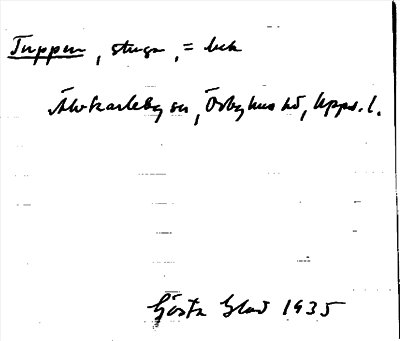 Tuppen, stuga, = bek
Älvkarleby sn, Örbyhus hd, Upps. l.
Gösta Blad 1935